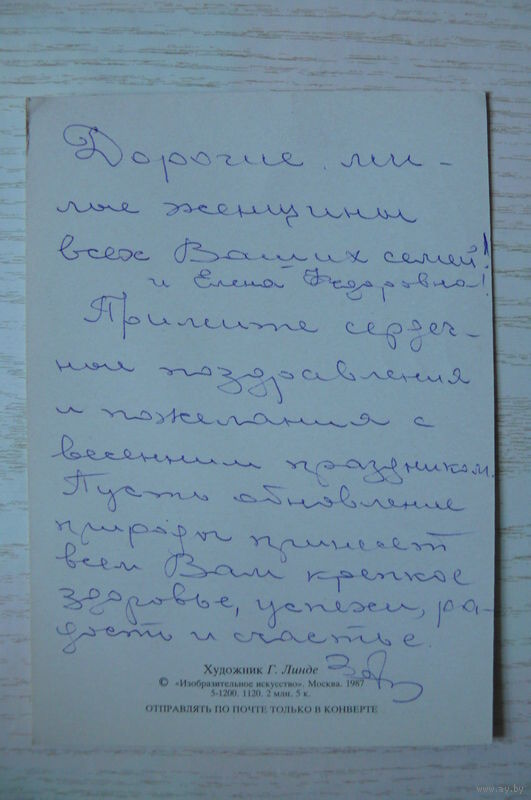 Дорогие, ми-
лые женщины
всех Ваших семей!
и Елена Федоровна!
Примите сердеч-
ные поздравления
и пожелания с
весенним праздником.
Пусть обновление
природы принесет
всем Вам крепкое
здоровье, успехи, ра-
дость и счастье.
Художник Г. Линде
© «Изобразительное искусство». Москва. 1987
5-1200. 1120. 2 млн. 5 к.
ОТПРАВЛЯТЬ ПО ПОЧТЕ ТОЛЬКО В КОНВЕРТЕ
www.ay.by